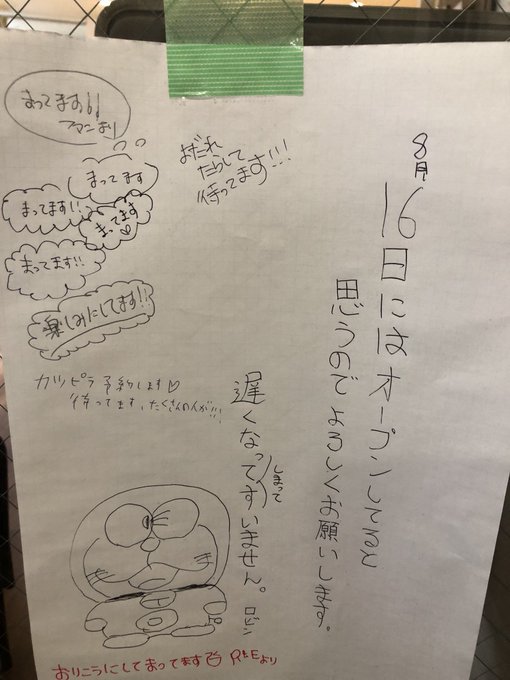 8月
16日にはオープンしてると
思うのでよろしくお願いします。
遅くなって
しまって
すいません。 ロビン
よだれ
たらして
待ってます!!!
まってます!!
ファンより
まってます
まってます!!
まってます♡
まってます!!
楽しみにしてます!!
カツピラ予約します♡
待ってます、たくさんの人が!!!
おりこうにしてまってます R&Eより